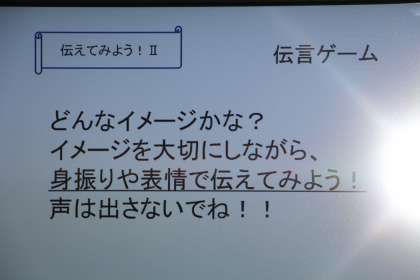 伝えてみよう！Ⅱ
伝言ゲーム
どんなイメージかな？
イメージを大切にしながら、
身振りや表情で伝えてみよう！
声は出さないでね！！